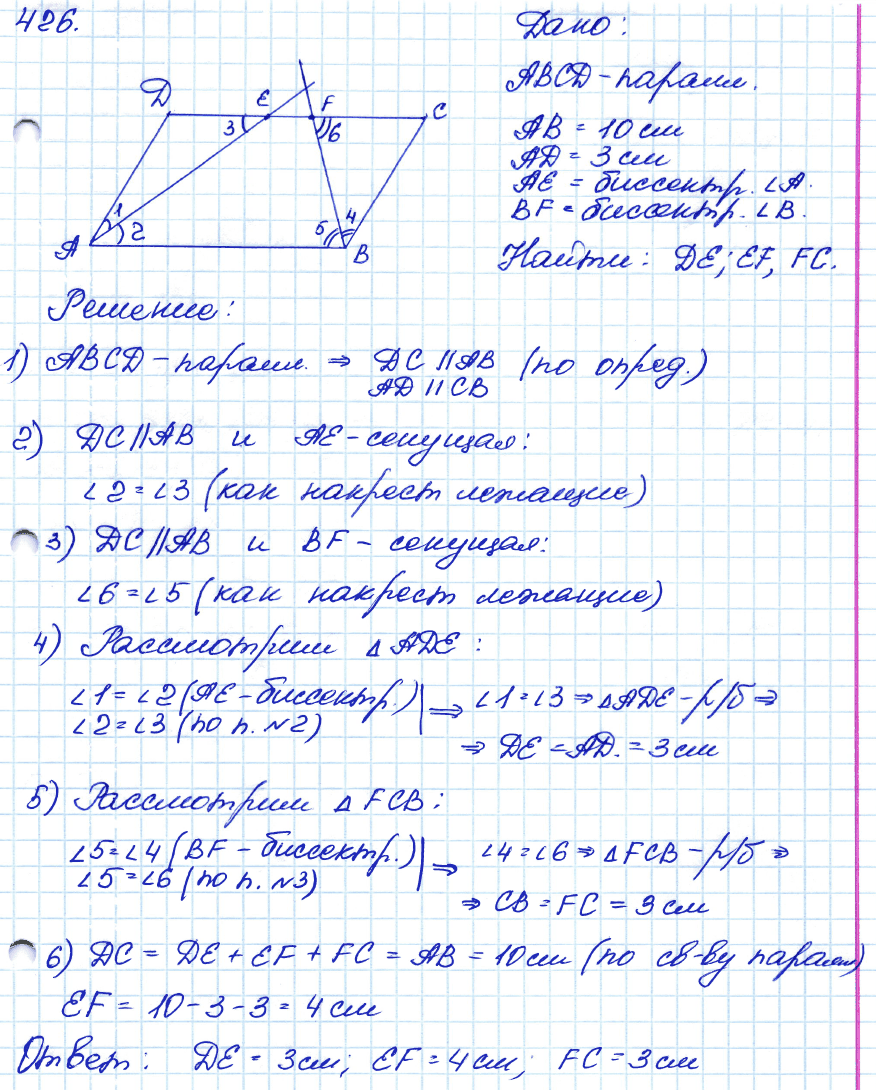 426.
Дано:
ABCD - паралл.
AB = 10 см
AD = 3 см
AE = биссектр. ∠A.
BF = биссектр. ∠B.
Найти: DE; EF, FC.
D E F C
3 6
1 2 5 4
A B
Решение:
1) ABCD - паралл. ⇒ DC || AB (по опред.)
AD || CB
2) DC || AB и AE - секущая:
∠2 = ∠3 (как накрест лежащие)
3) DC || AB и BF - секущая:
∠6 = ∠5 (как накрест лежащие)
4) Рассмотрим △ADE:
∠1 = ∠2 (AE - биссектр.) | ⇒ ∠1 = ∠3 ⇒ △ADE - р/б ⇒
∠2 = ∠3 (по п. №2)
⇒ DE = AD. = 3 см
5) Рассмотрим △ FCB:
∠5 = ∠4 (BF - биссектр.) | ⇒ ∠4 = ∠6 ⇒ △FCB - р/б ⇒
∠5 = ∠6 (по п. №3)
⇒ CB = FC = 3 см
6) DC = DE + EF + FC = AB = 10 см (по св-ву паралл)
EF = 10 - 3 - 3 = 4 см
Ответ: DE = 3 см; EF = 4 см; FC = 3 см